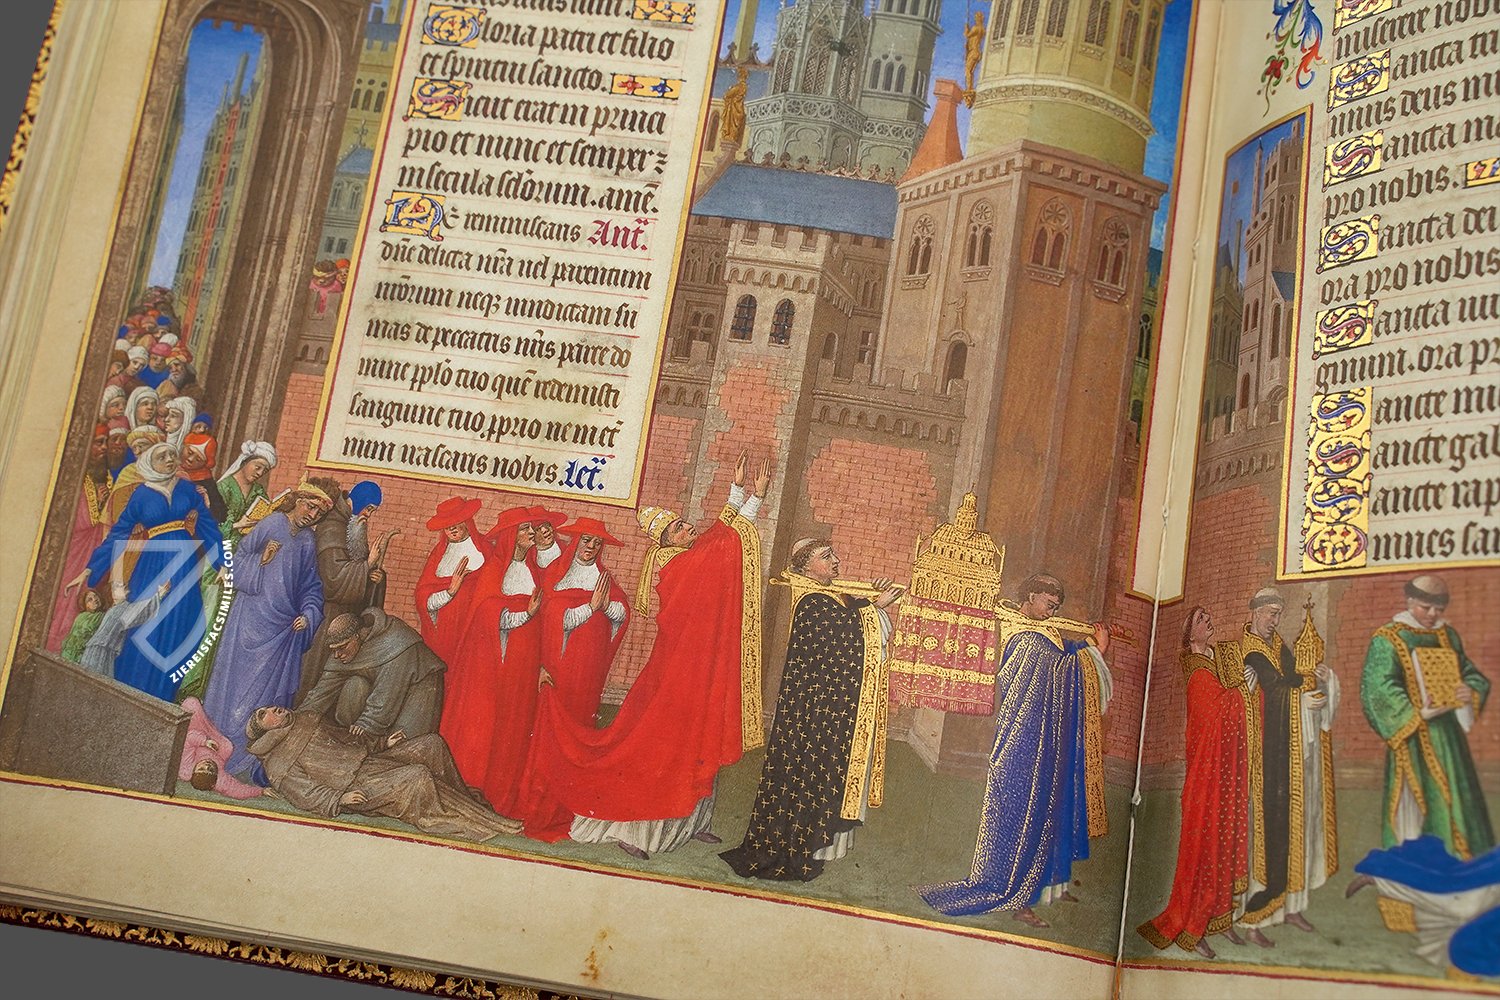 Gloria patri et filio
et spiritui sancto.
Sicut erat in princi
pio et nunc et semper ⁊
in secula sc̄lorum. amē.
Ne reminiscaris Ant̄.
dn̄e delicta nr̄a uel parentum
nr̄orum neqꝫ uindictam su
mas de peccatis nr̄is parce do
mine pplō tuo quē redemisti
sanguine tuo ꝓprio ne in et̄
num irascaris nobis. Let̄.
miserere nobis
Sancta tri
unus deus mi
Sancta ma
pro nobis.
Sancta dei
ora pro nobis
Sancta uir
ginum. ora pr
Sancte mi
Sancte gab
Sancte rap
Omnes san
ZIEREISFACSIMILES.COM